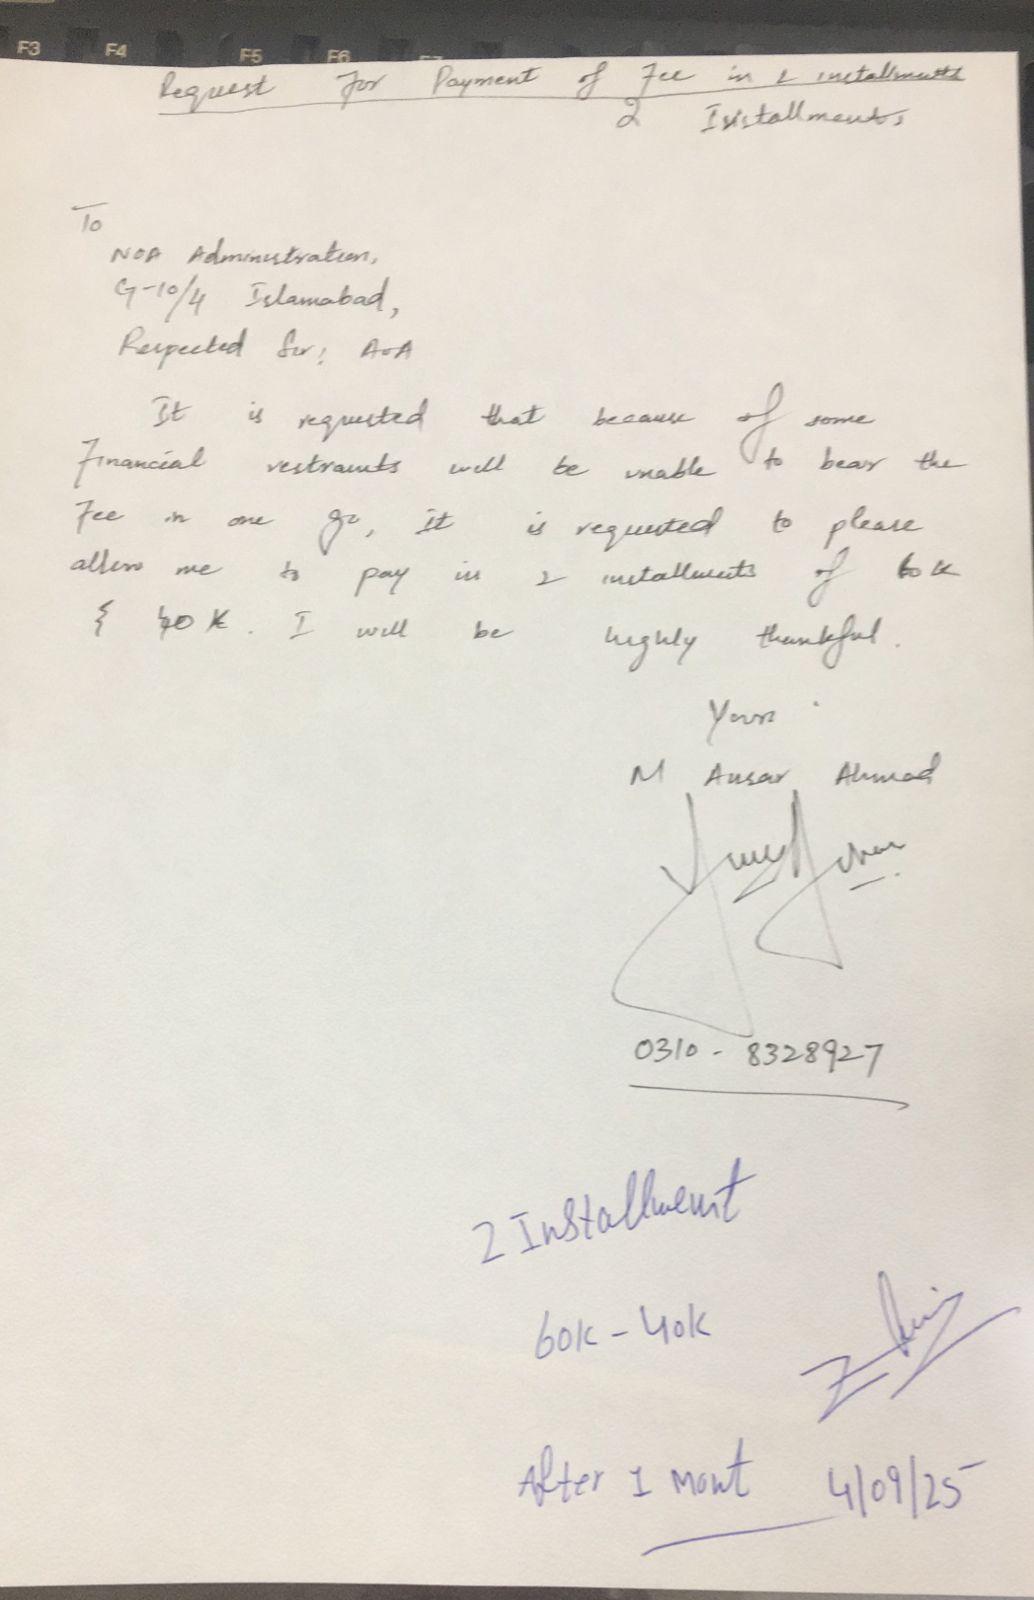 F3 F4 F5 F6
Request For Payment of Fee in 2 installments
2 Installments
To
NOA Administration,
G-10/4 Islamabad,
Respected Sir! AoA
It is requested that because of some
Financial restraints will be unable to bear the
Fee in one go, It is requested to please
allow me to pay in 2 installments of 60K
& 40K. I will be highly thankful.
Yours
M Ansar Ahmad
0310 - 8328927
2 Installment
60K - 40K
After 1 Mont 4/09/25